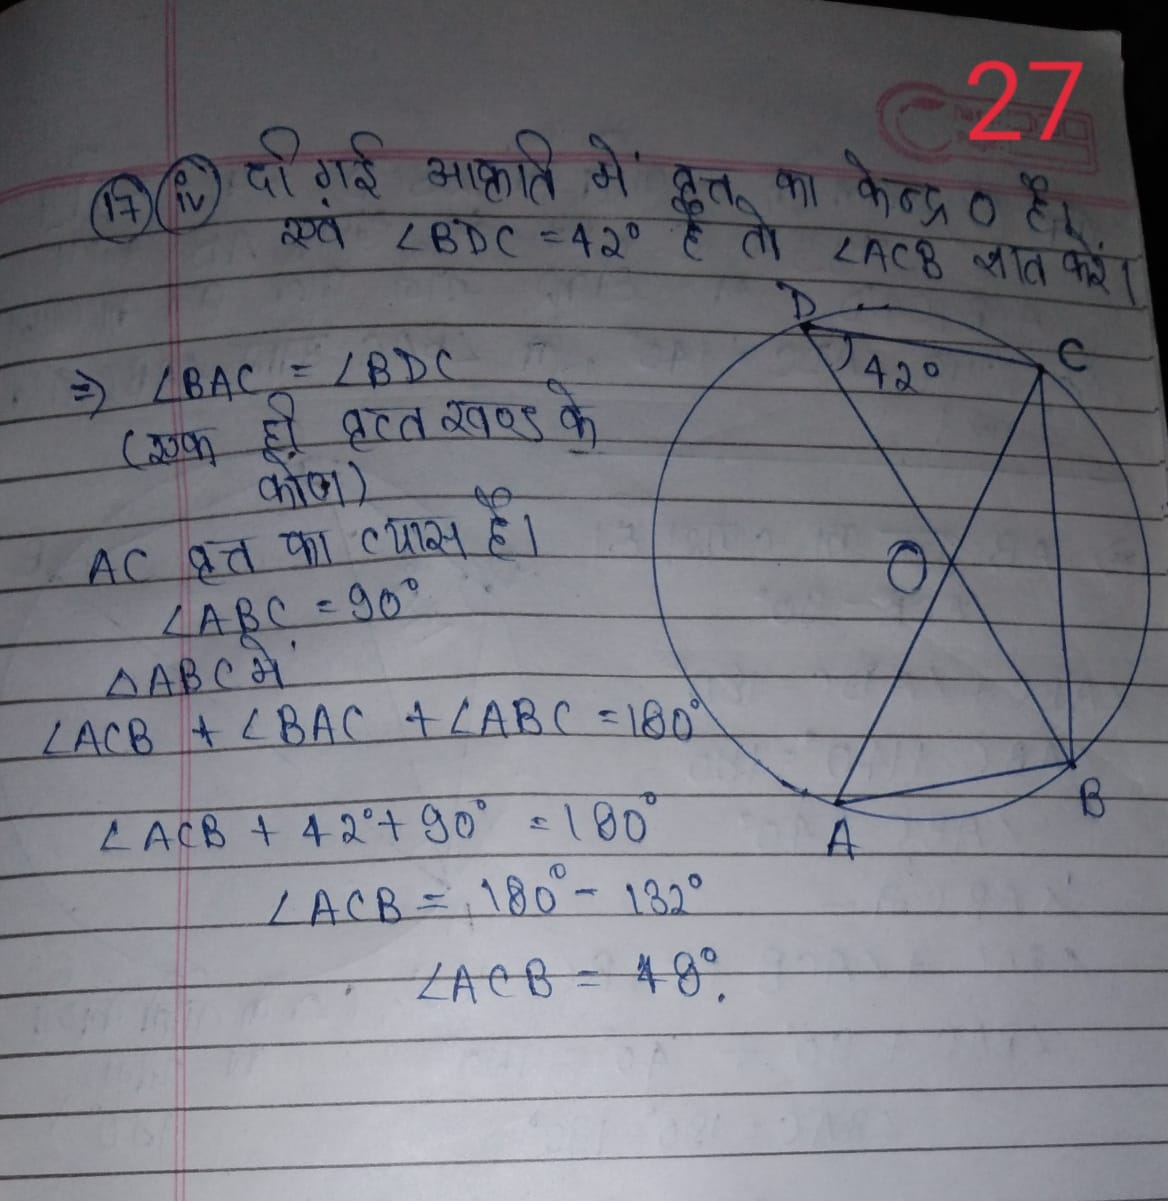 27
17 iv दी गई आकृति में वृत्त का केन्द्र O है।
एवं ∠BDC = 42° है तो ∠ACB ज्ञात करें।
D
C
42°
⇒ ∠BAC = ∠BDC
(एक ही वृत्त खण्ड के
कोण)
O
AC वृत्त का व्यास है।
∠ABC = 90°
△ABC में
∠ACB + ∠BAC + ∠ABC = 180°
B
A
∠ACB + 42° + 90° = 180°
∠ACB = 180° - 132°
∠ACB = 48°.